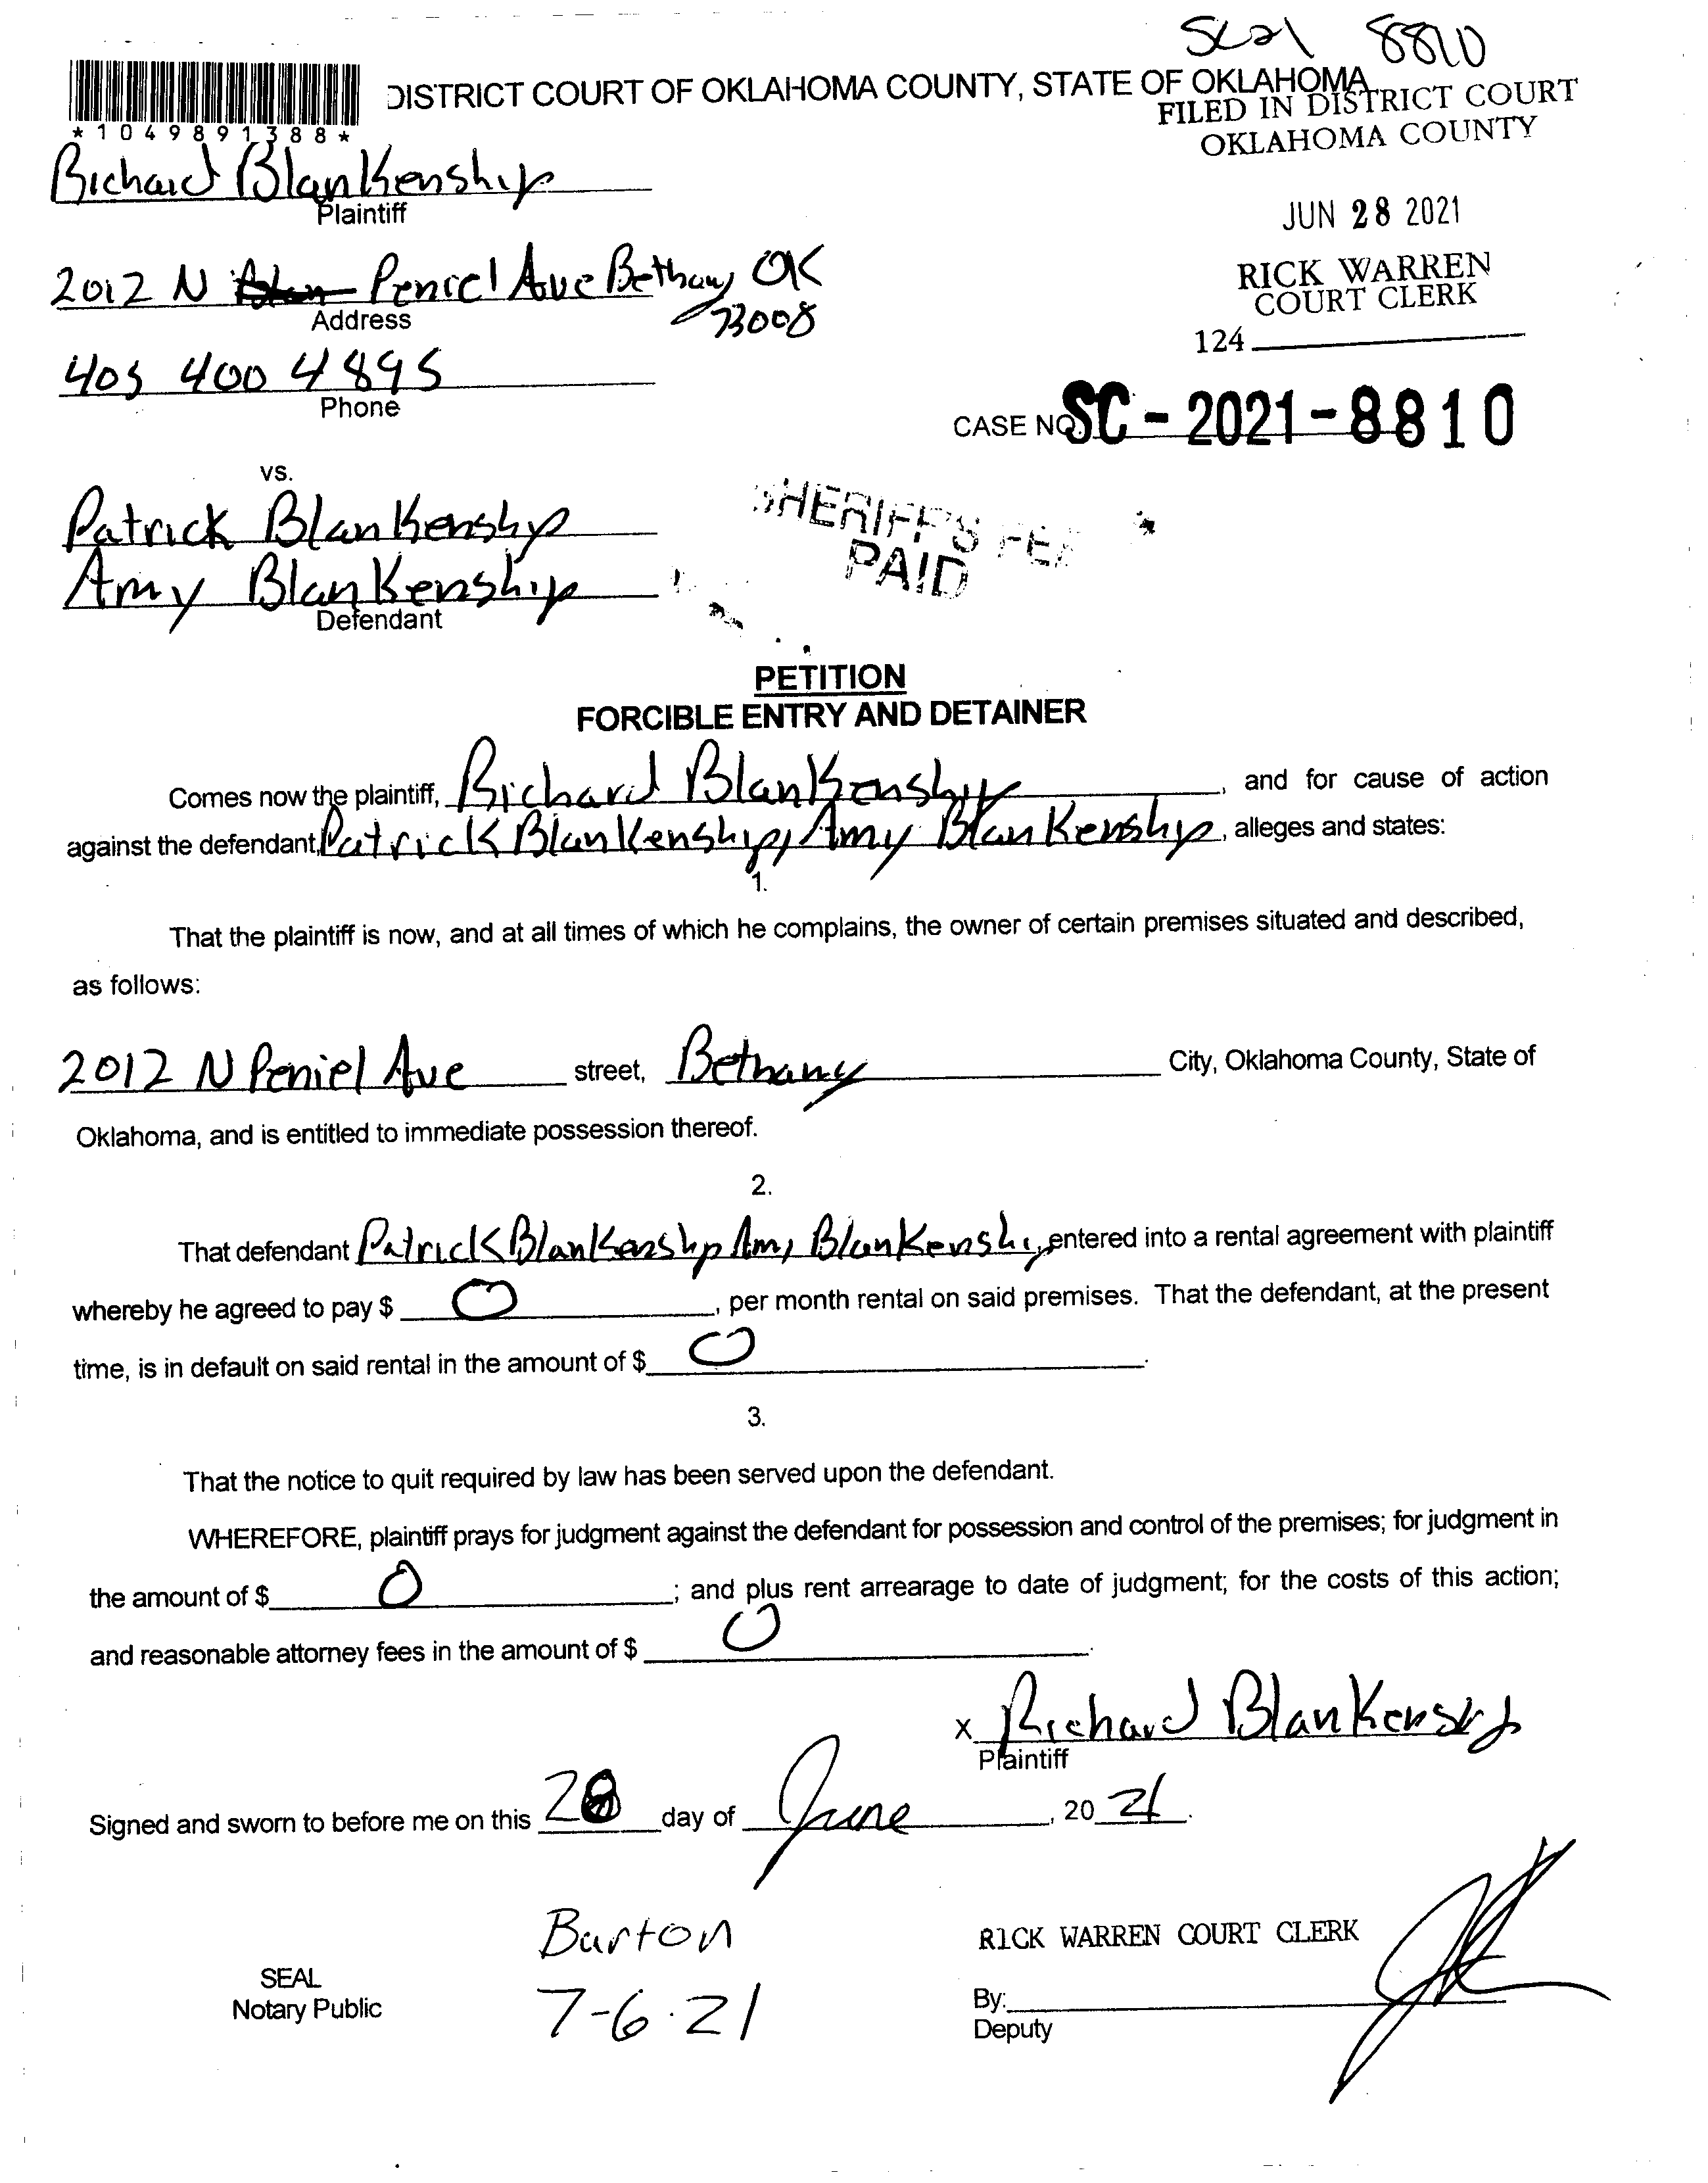 SC21 8810
DISTRICT COURT OF OKLAHOMA COUNTY, STATE OF OKLAHOMA
FILED IN DISTRICT COURT
OKLAHOMA COUNTY
*1049891388*
Richard Blankenship
Plaintiff
JUN 28 2021
2012 N Peniel Ave Bethany OK
73008
Address
RICK WARREN
COURT CLERK
124
405 400 4895
Phone
CASE NO. SC - 2021 - 8810
vs.
Patrick Blankenship
Amy Blankenship
Defendant
SHERIFF'S FEE
PAID
PETITION
FORCIBLE ENTRY AND DETAINER
Comes now the plaintiff, Richard Blankenship, and for cause of action
against the defendant, Patrick Blankenship, Amy Blankenship, alleges and states:
1.
That the plaintiff is now, and at all times of which he complains, the owner of certain premises situated and described,
as follows:
2012 N Peniel Ave street, Bethany City, Oklahoma County, State of
Oklahoma, and is entitled to immediate possession thereof.
2.
That defendant Patrick Blankenship Amy Blankenship, entered into a rental agreement with plaintiff
whereby he agreed to pay $ 0, per month rental on said premises. That the defendant, at the present
time, is in default on said rental in the amount of $ 0.
3.
That the notice to quit required by law has been served upon the defendant.
WHEREFORE, plaintiff prays for judgment against the defendant for possession and control of the premises; for judgment in
the amount of $ 0; and plus rent arrearage to date of judgment; for the costs of this action;
and reasonable attorney fees in the amount of $ 0.
x Richard Blankenship
Plaintiff
Signed and sworn to before me on this 28 day of June, 20 21.
Burton
7-6-21
RICK WARREN COURT CLERK
SEAL
Notary Public
By:
Deputy